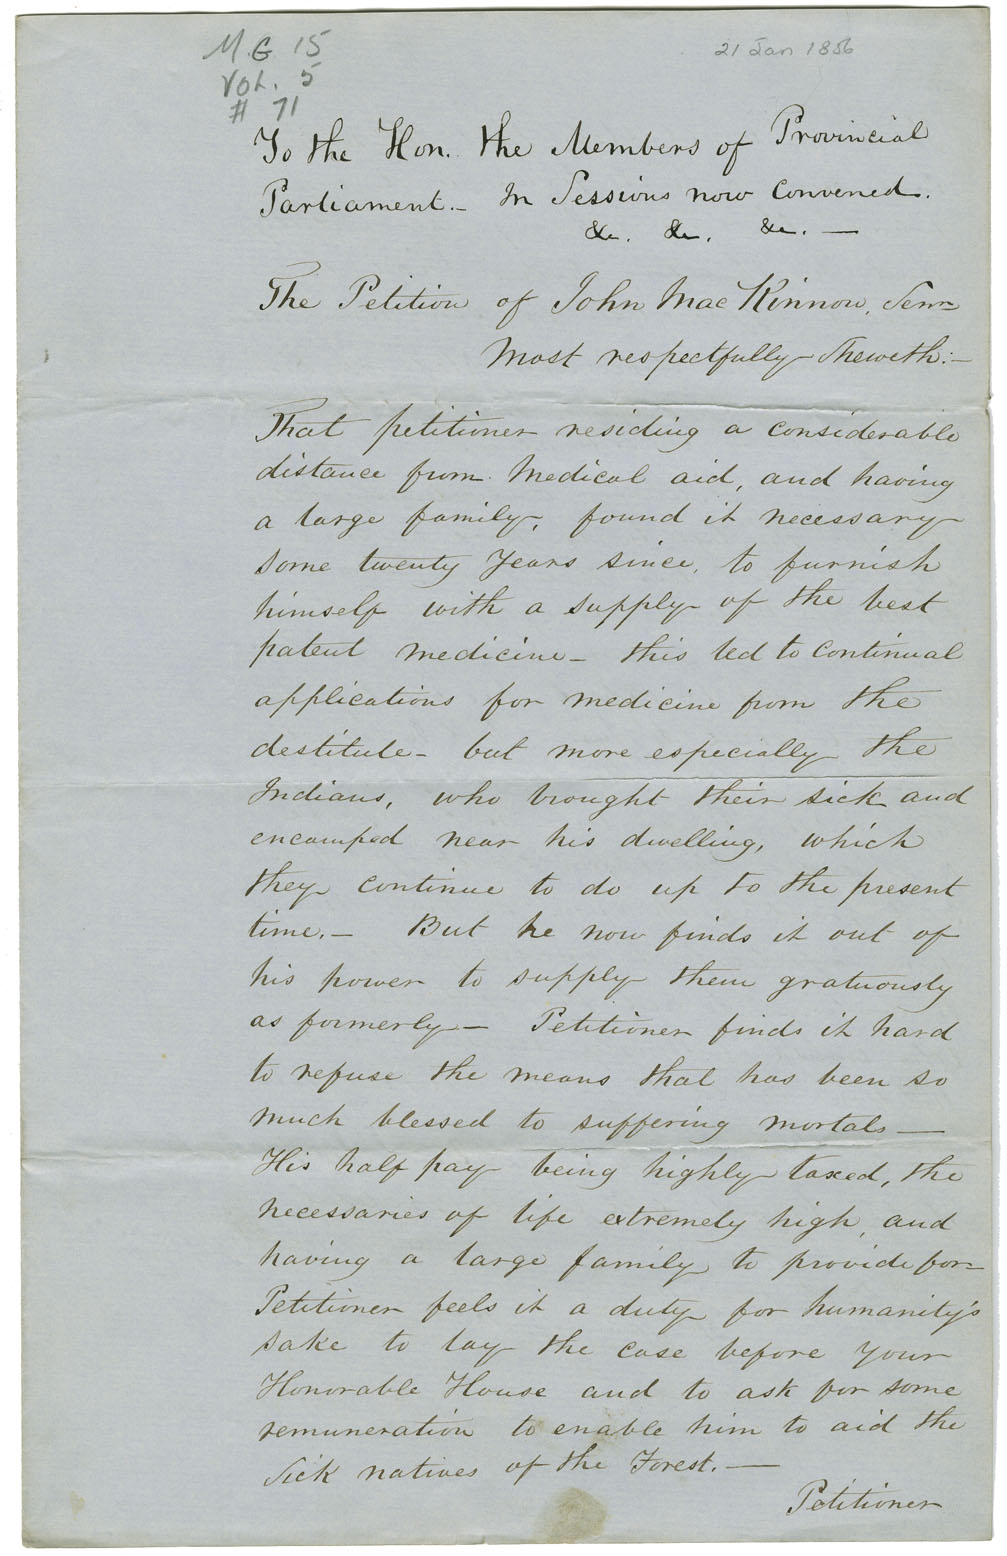 M.G 15
Vol. 5
# 71
21 Jan 1856
To the Hon. the Members of Provincial
Parliament. – In Sessions now Convened.
&c. &c. &c. —
The Petition of John MacKinnon, Senr
Most respectfully Sheweth:–
That petitioner residing a considerable
distance from Medical aid, and having
a large family, found it necessary
some twenty Years since, to furnish
himself with a supply of the best
patent medicine – this led to Continual
applications for medicine from the
destitute – but more especially the
Indians, who brought their sick and
encamped near his dwelling, which
they continue to do up to the present
time. – But he now finds it out of
his power to supply them gratuously
as formerly – Petitioner finds it hard
to refuse the means that has been so
much blessed to suffering mortals —
His half pay being highly taxed, the
necessaries of life extremely high, and
having a large family to provide for –
Petitioner feels it a duty for humanity's
sake to lay the case before your
Honorable House and to ask for some
remuneration to enable him to aid the
Sick natives of the Forest. —
Petitioner